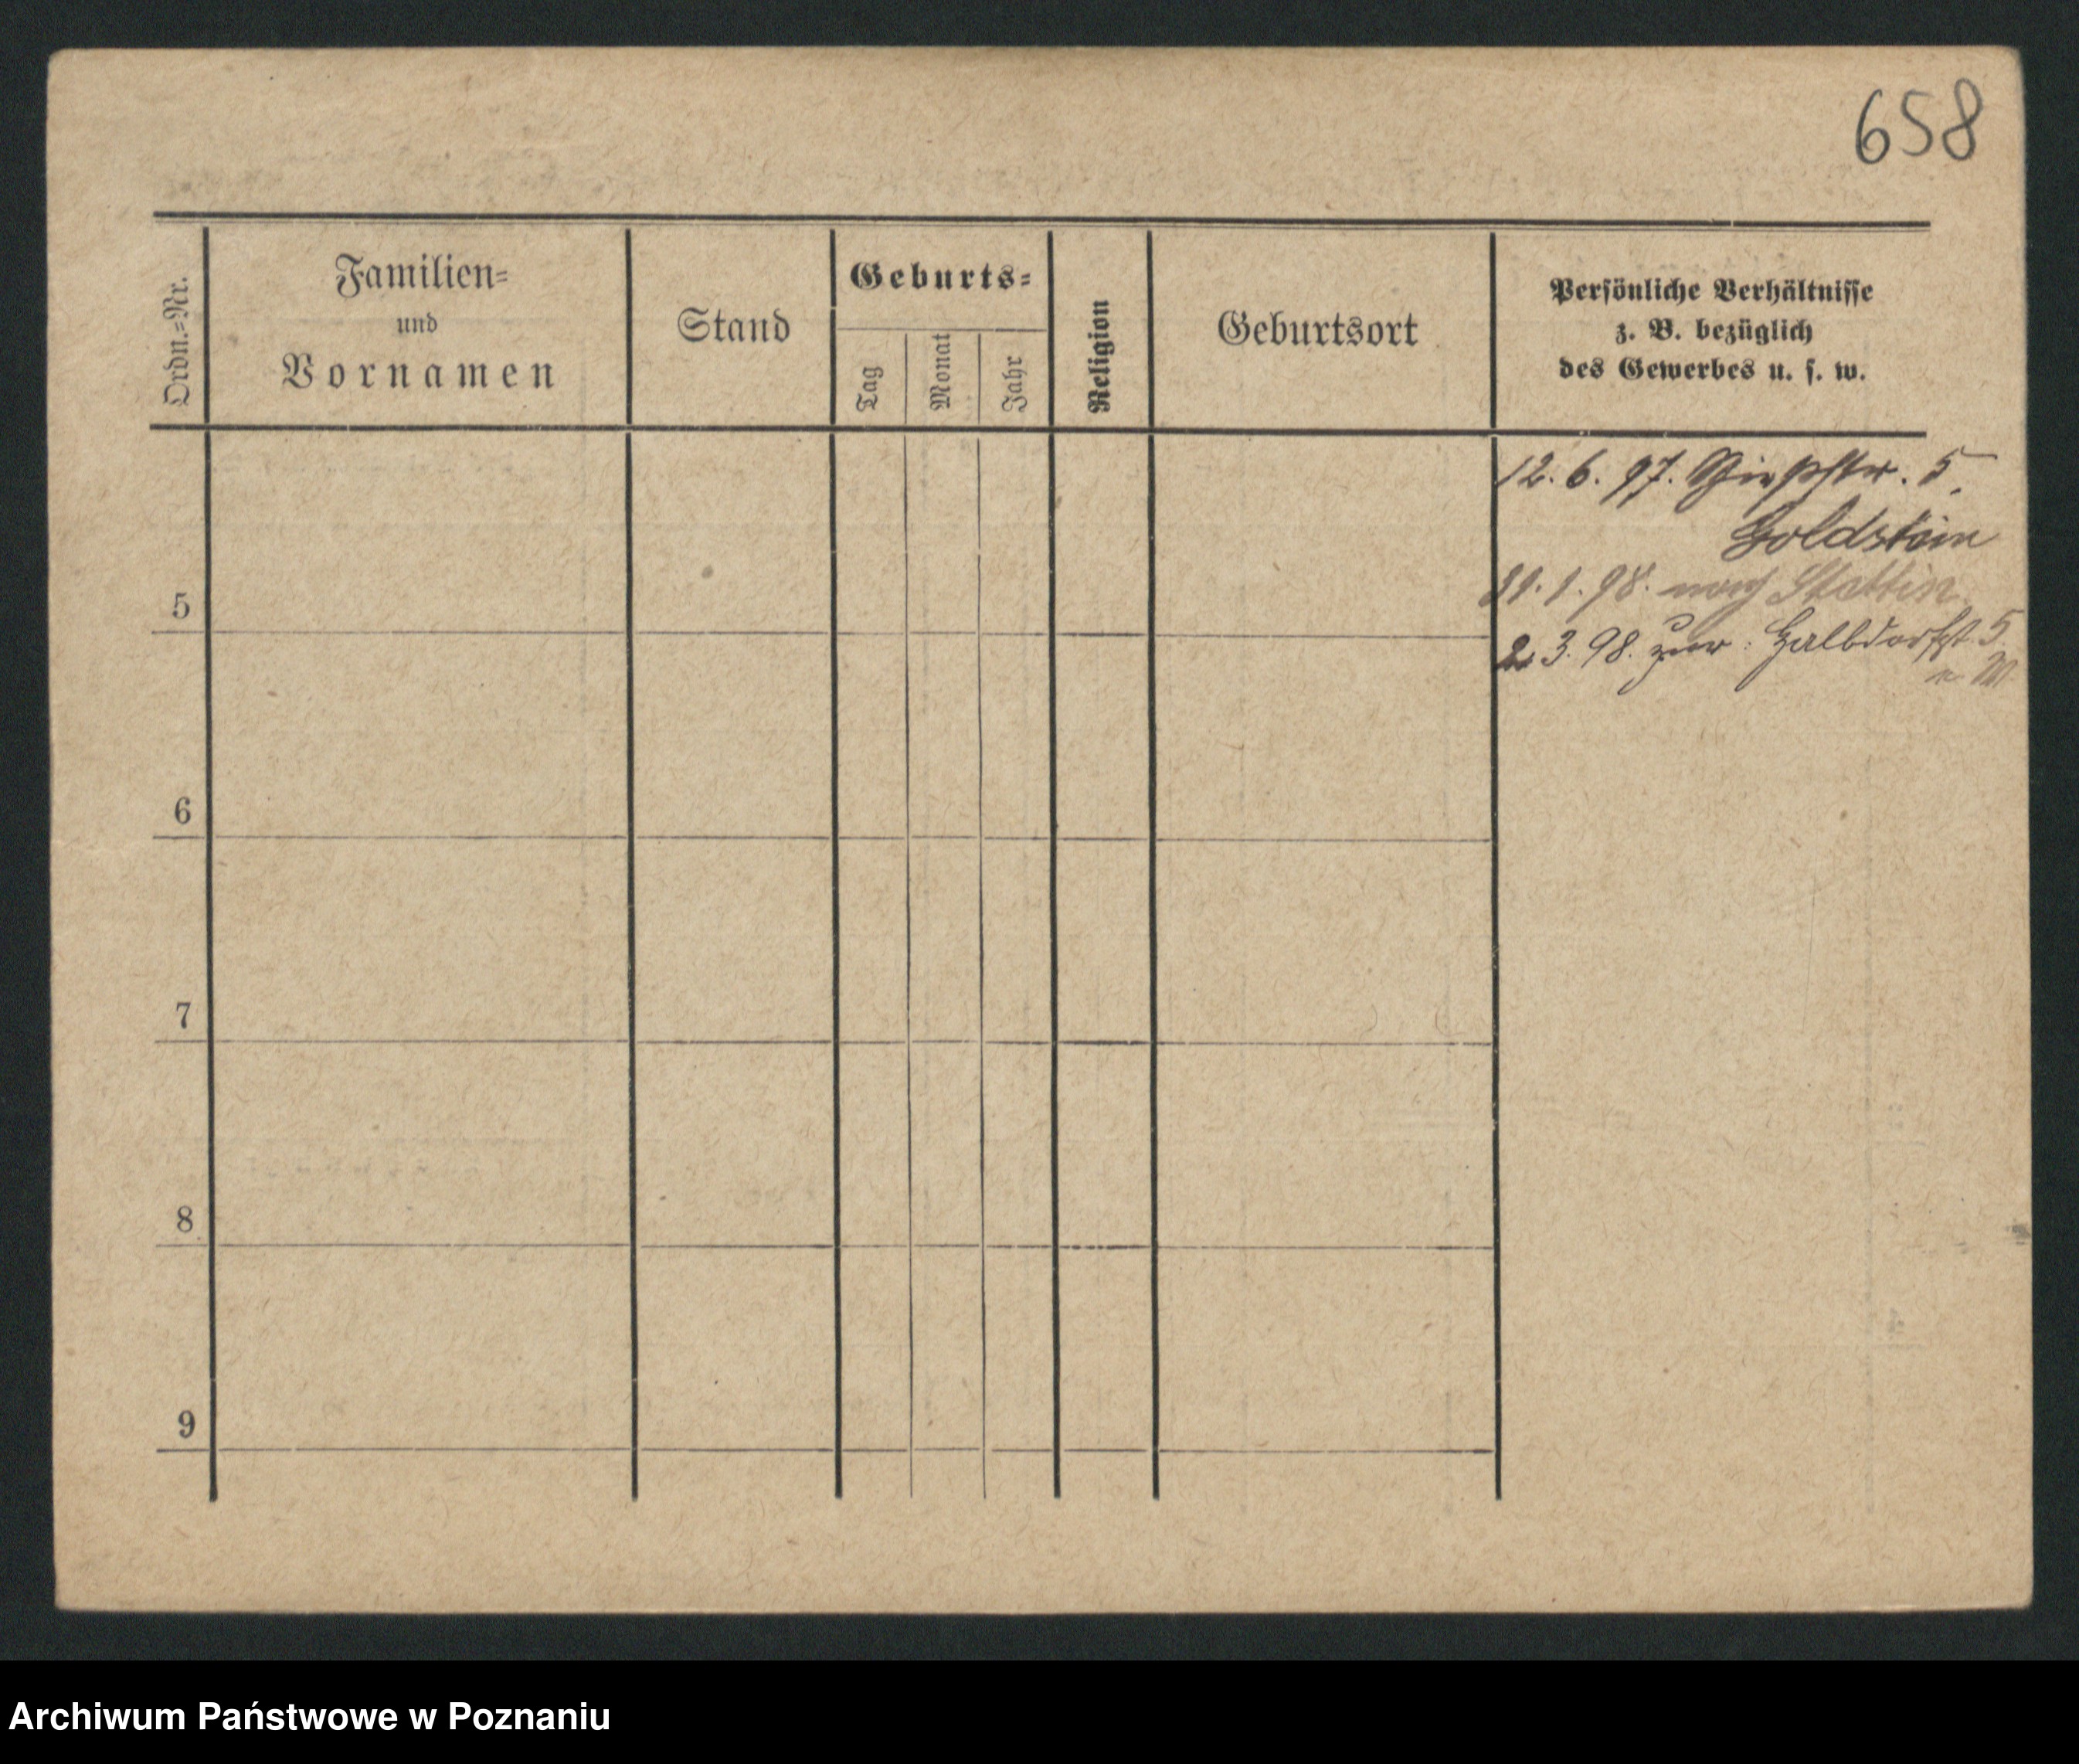 658
Ordn.-Nr.
Familien-
und
Vornamen
Stand
Geburts-
Tag
Monat
Jahr
Religion
Geburtsort
Persönliche Verhältnisse
z. B. bezüglich
des Gewerbes u. s. w.
12. 6. 97. 5.
Goldstein
1. 98. nach Stettin
5
2. 3. 98. zur: Halbdorfst. 5.
6
7
8
9
Archiwum Państwowe w Poznaniu